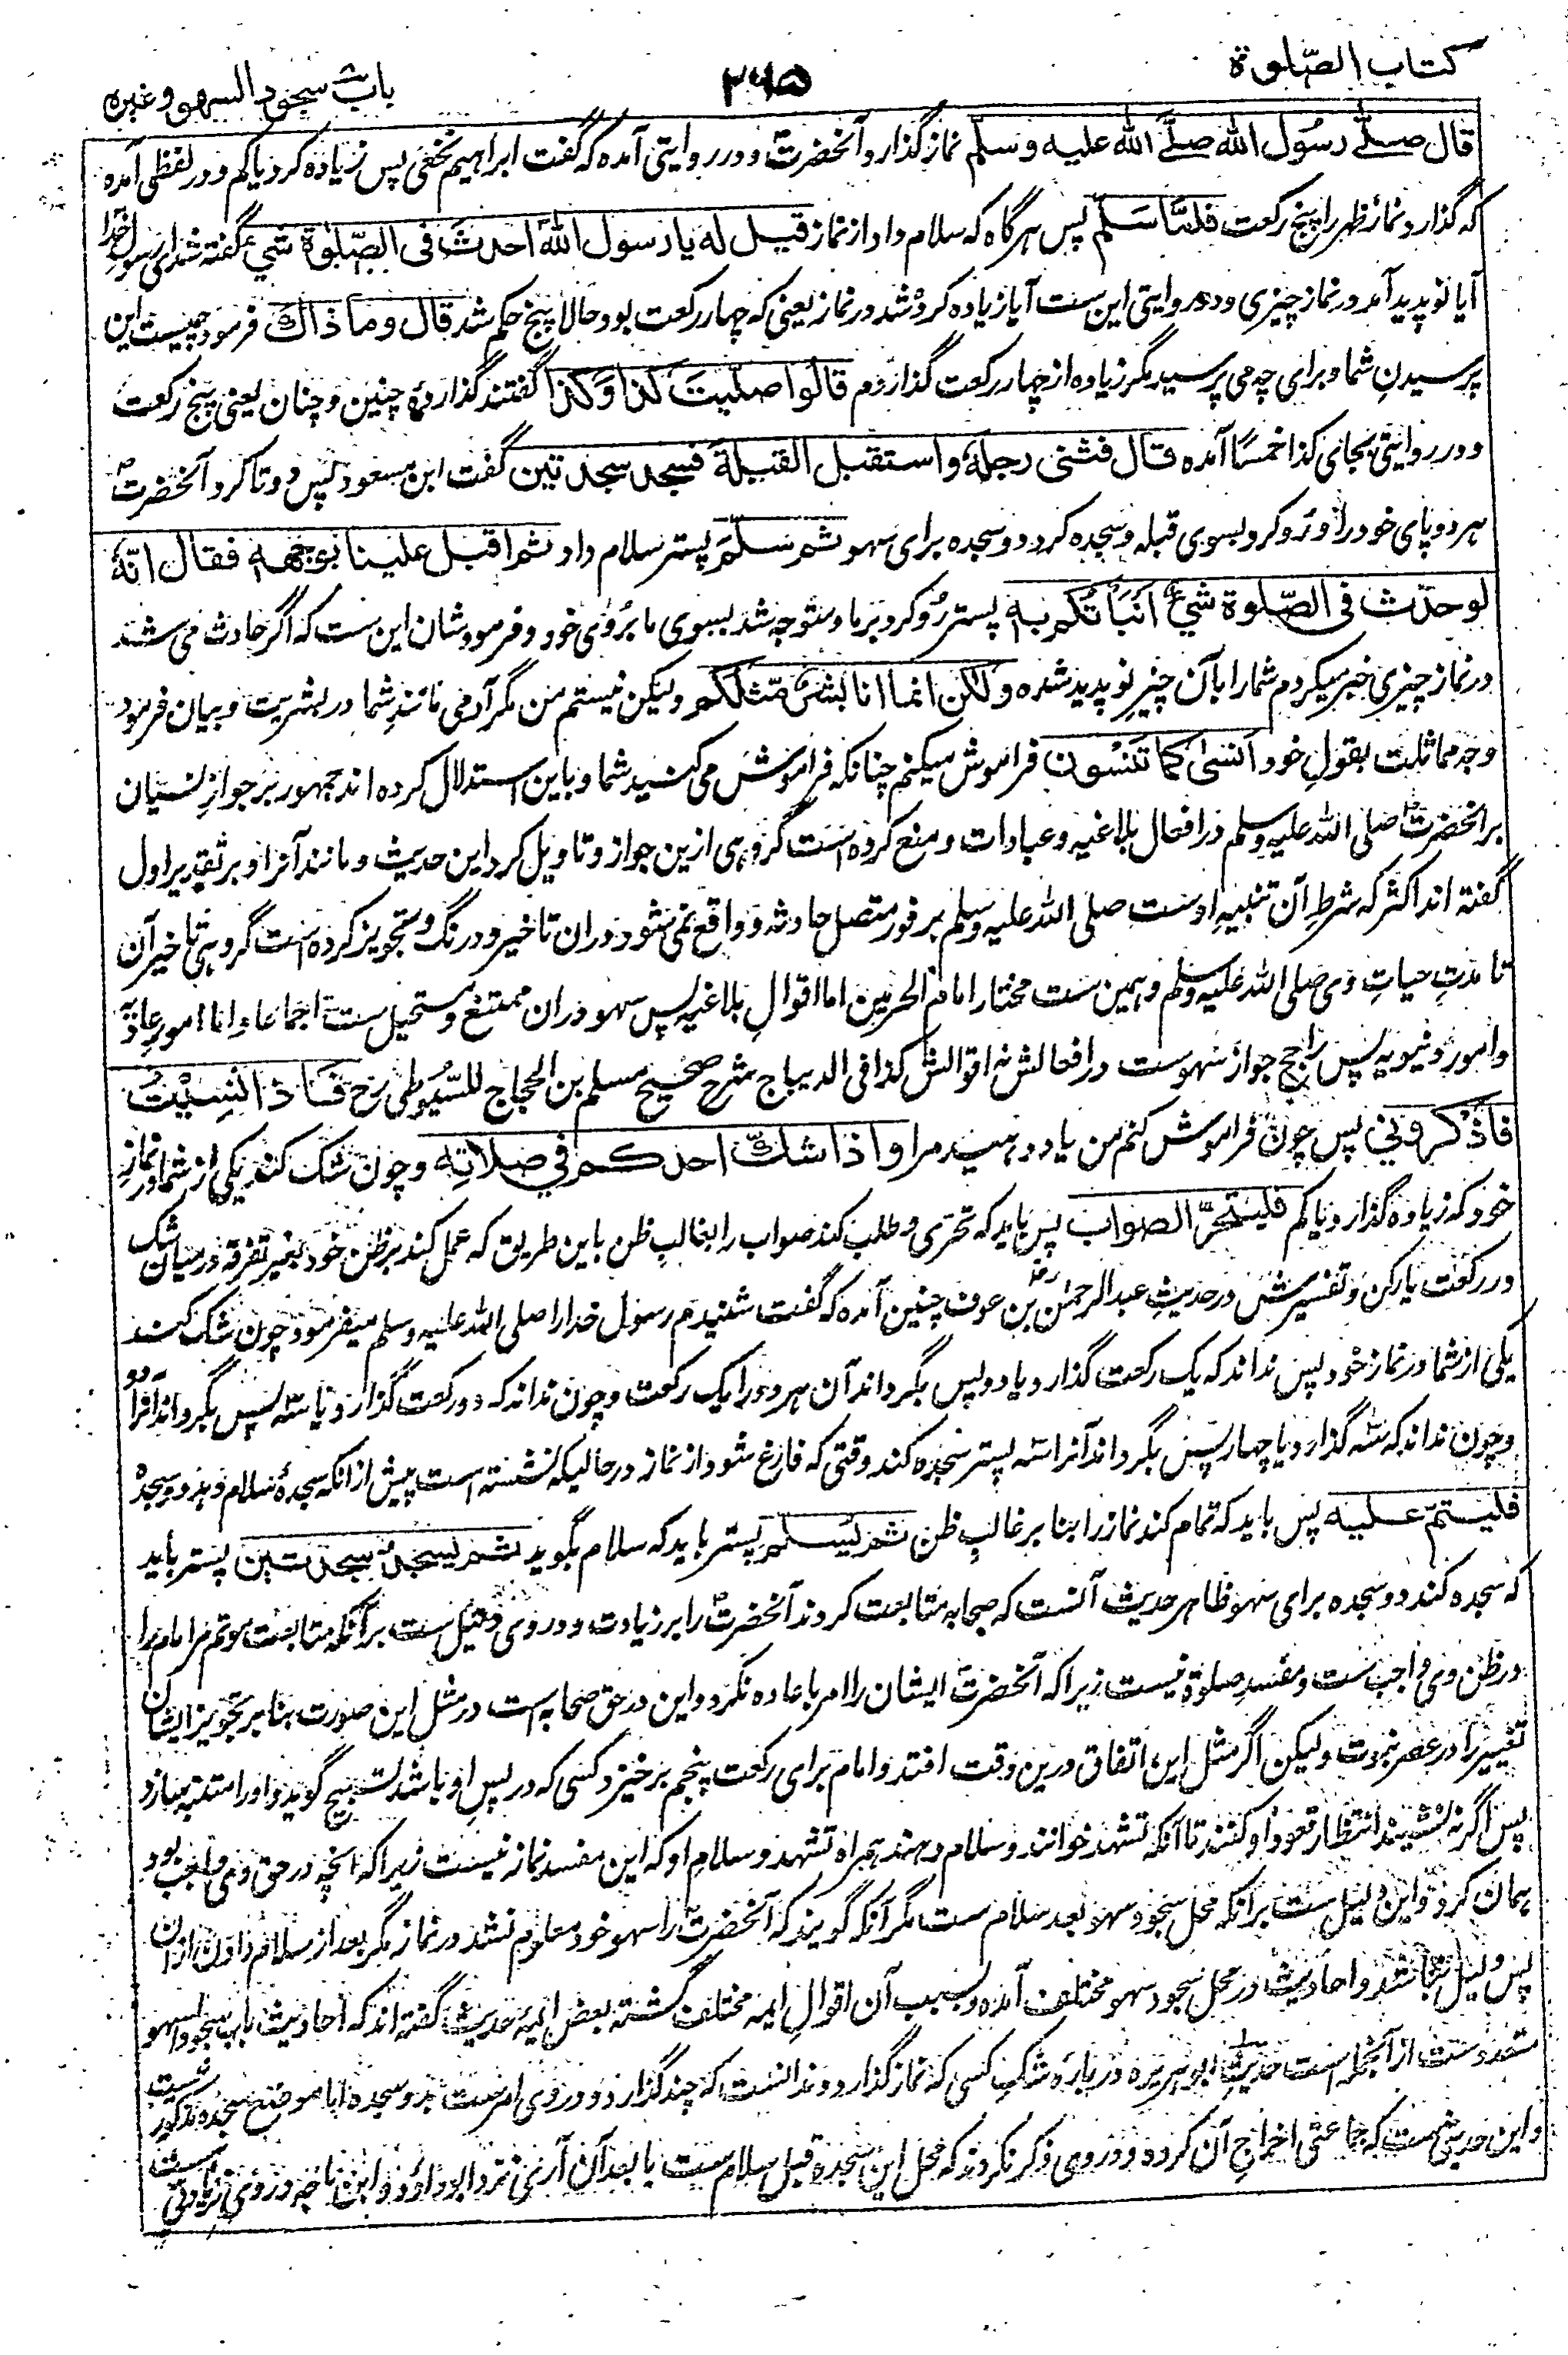 کتاب الصّلوة
۳۶۵
باب سجود السهو وغیره
قال صلّے رسُول الله صلے الله علیه وسلّم نماز گذارد آنحضرت و در روایتی آمده که گفت ابراهیم نخعی پس زیاده کرد یا کم و در لفظی آمده
که گذارد نماز ظهر را پنج رکعت فلمّا سَلّم پس هرگاه که سلام داد از نماز قیل له یا رسول اللهَ احدثَ فی الصّلوة شیء گفته شد ای رسول خدا
آیا نو پدید آمد در نماز چیزی و در روایتی این ست آیا زیاده کرده شد در نماز یعنی که چهار رکعت بود حالا پنج حکم شد قال وما ذاك فرمود چیست این
پرسیدنِ شما و برای چه می پرسید مگر زیاده از چهار رکعت گذاردم قالوا صلّیتَ کذا وَکذا گفتند گذاردهٔ چنین و چنان یعنی پنج رکعت
و در روایتی بجای کذا خمسًا آمده قال فثنی رجلهٗ واستقبل القبلةَ فسجد سجدتین گفت ابن مسعود پس دوتا کرد آنحضرت
هر دو پای خود را و رُو کرد بسوی قبله و سجده کرد دو سجده برای سهو ثم سلّمَ پستر سلام داد ثم اقبل علینا بوجهه فقال انّهٗ
لو حدَث فی الصّلوة شیءٌ انبَأتُکم بهٖ پستر رُو کرد بر ما و متوجه شد بسوی ما بُروی خود و فرمود شان این ست که اگر حادث می شد
در نماز چیزی خبر میکردم شما را بآن چیزِ نو پدید شده ولکن انما انا بشرٌ مّثلکم ولیکن نیستم من مگر آدمی مانندِ شما در بشریت و بیان فرمود
وجه مماثلت بقولِ خود انسٰی کما تنسَون فراموش میکنم چنانکه فراموش می کنید شما و باین استدلال کرده اند جمهور بر جوازِ نسیان
بر آنحضرت صلی الله علیه وسلم در افعال بلاغیه و عبادات و منع کرده است گروهی ازین جواز و تاویل کرد این حدیث و مانند آنرا و بر تقدیر اول
گفته اند اکثر که شرطِ آن تنبیه اوست صلی الله علیه وسلم بر فور متصل حادثه و واقع نمی شود دران تاخیر و درنگ و تجویز کرده است گروهی تاخیر آن
تا مدتِ حیاتِ وی صلی الله علیه وسلم و همین ست مختار امام الحرمین اما اقوالِ بلاغیه پس سهو دران ممتنع و مستحیل ست اجماعا و اما امورِ عادیّه
و امور دنیویه پس راجح جوازِ سهوست در افعالش نه اقوالش کذا فی الدیباج شرح صحیح مسلم بن الحجاج للسّیوطی رح فاذا نسِیْتُ
فاذْکرونی پس چون فراموش کنم من یاد دهید مرا واذا شكّ احدکم فی صلاتِه و چون شک کند یکی از شما در نمازِ
خود که زیاده گذارد یا کم فلیتحرّ الصواب پس باید که تحری و طلب کند صواب را بغالبِ ظن باین طریق که عمل کند بر ظن خود بغیر تفرقه در میان شک
در رکعت یا رکن و تفسیرش در حدیثِ عبد الرحمٰن بن عوف رض چنین آمده که گفت شنیدم رسول خدا را صلی الله علیه وسلم میفرمود چون شک کند
یکی از شما در نماز خود پس نداند که یک رکعت گذارد یا دو پس بگرداند آن هر دو را یک رکعت و چون نداند که دو رکعت گذارد یا سه پس بگرداند آنرا دو
و چون نداند که سه گذارد یا چهار پس بگرداند آنرا سه پستر سجده کند وقتی که فارغ شود از نماز در حالیکه نشسته است پیش از انکه سجدهٔ سلام دهد دو سجده
فلیتمّ علیه پس باید که تمام کند نماز را بنا بر غالبِ ظن ثمّ یُسلّم پستر باید که سلام بگوید ثم یسجد سجدتین پستر باید
که سجده کند دو سجده برای سهو ظاهر حدیث آنست که صحابه متابعت کردند آنحضرت را بر زیادت و در وی دلیل ست بر آنکه متابعت موتم مر امام را
در ظن وی واجب ست و مفسدِ صلوة نیست زیرا که آنحضرت ایشان را امر باعاده نکرد و این در حق صحابه است در مثل این صورت بنا بر تجویز ایشان
تغییر را در عصرِ نبوت ولیکن اگر مثل این اتفاق درین وقت افتد و امام برای رکعت پنجم برخیزد کسی که در پسِ او باشد تسبیح گوید و او را متنبه سازد
پس اگر نه نشیند انتظار قعود او کنند تا آنکه تشهد خوانند و سلام دهند همراه تشهد و سلامِ او که این مفسد نماز نیست زیرا که آنچه در حق وی واجب بود
همان کرد و این دلیل ست بر آنکه محل سجود سهو بعد سلام ست مگر آنکه گویند که آنحضرت را سهو خود معلوم نشد در نماز مگر بعد از سلام دادن ازان
پس دلیل نباشد و احادیث در محل سجود سهو مختلف آمده و بسبب آن اقوالِ ایمه مختلف گشته بعض ایمهٔ حدیث گفته اند که احادیث باب سجود السهو
متعددست از آنجمله است حدیث ابو هریره در بارهٔ شکِ کسی که نماز گذارد و ندانست که چند گذارد و در وی امرست بدو سجده اما موضعِ سجده مذکور نیست
و این حدیثی ست که جماعتی اخراجِ آن کرده و در وی ذکر نکردند که محل این سجده قبل سلام ست یا بعد آن آری نزد ابو داؤد و ابن ماجه در وی زیادتی ست